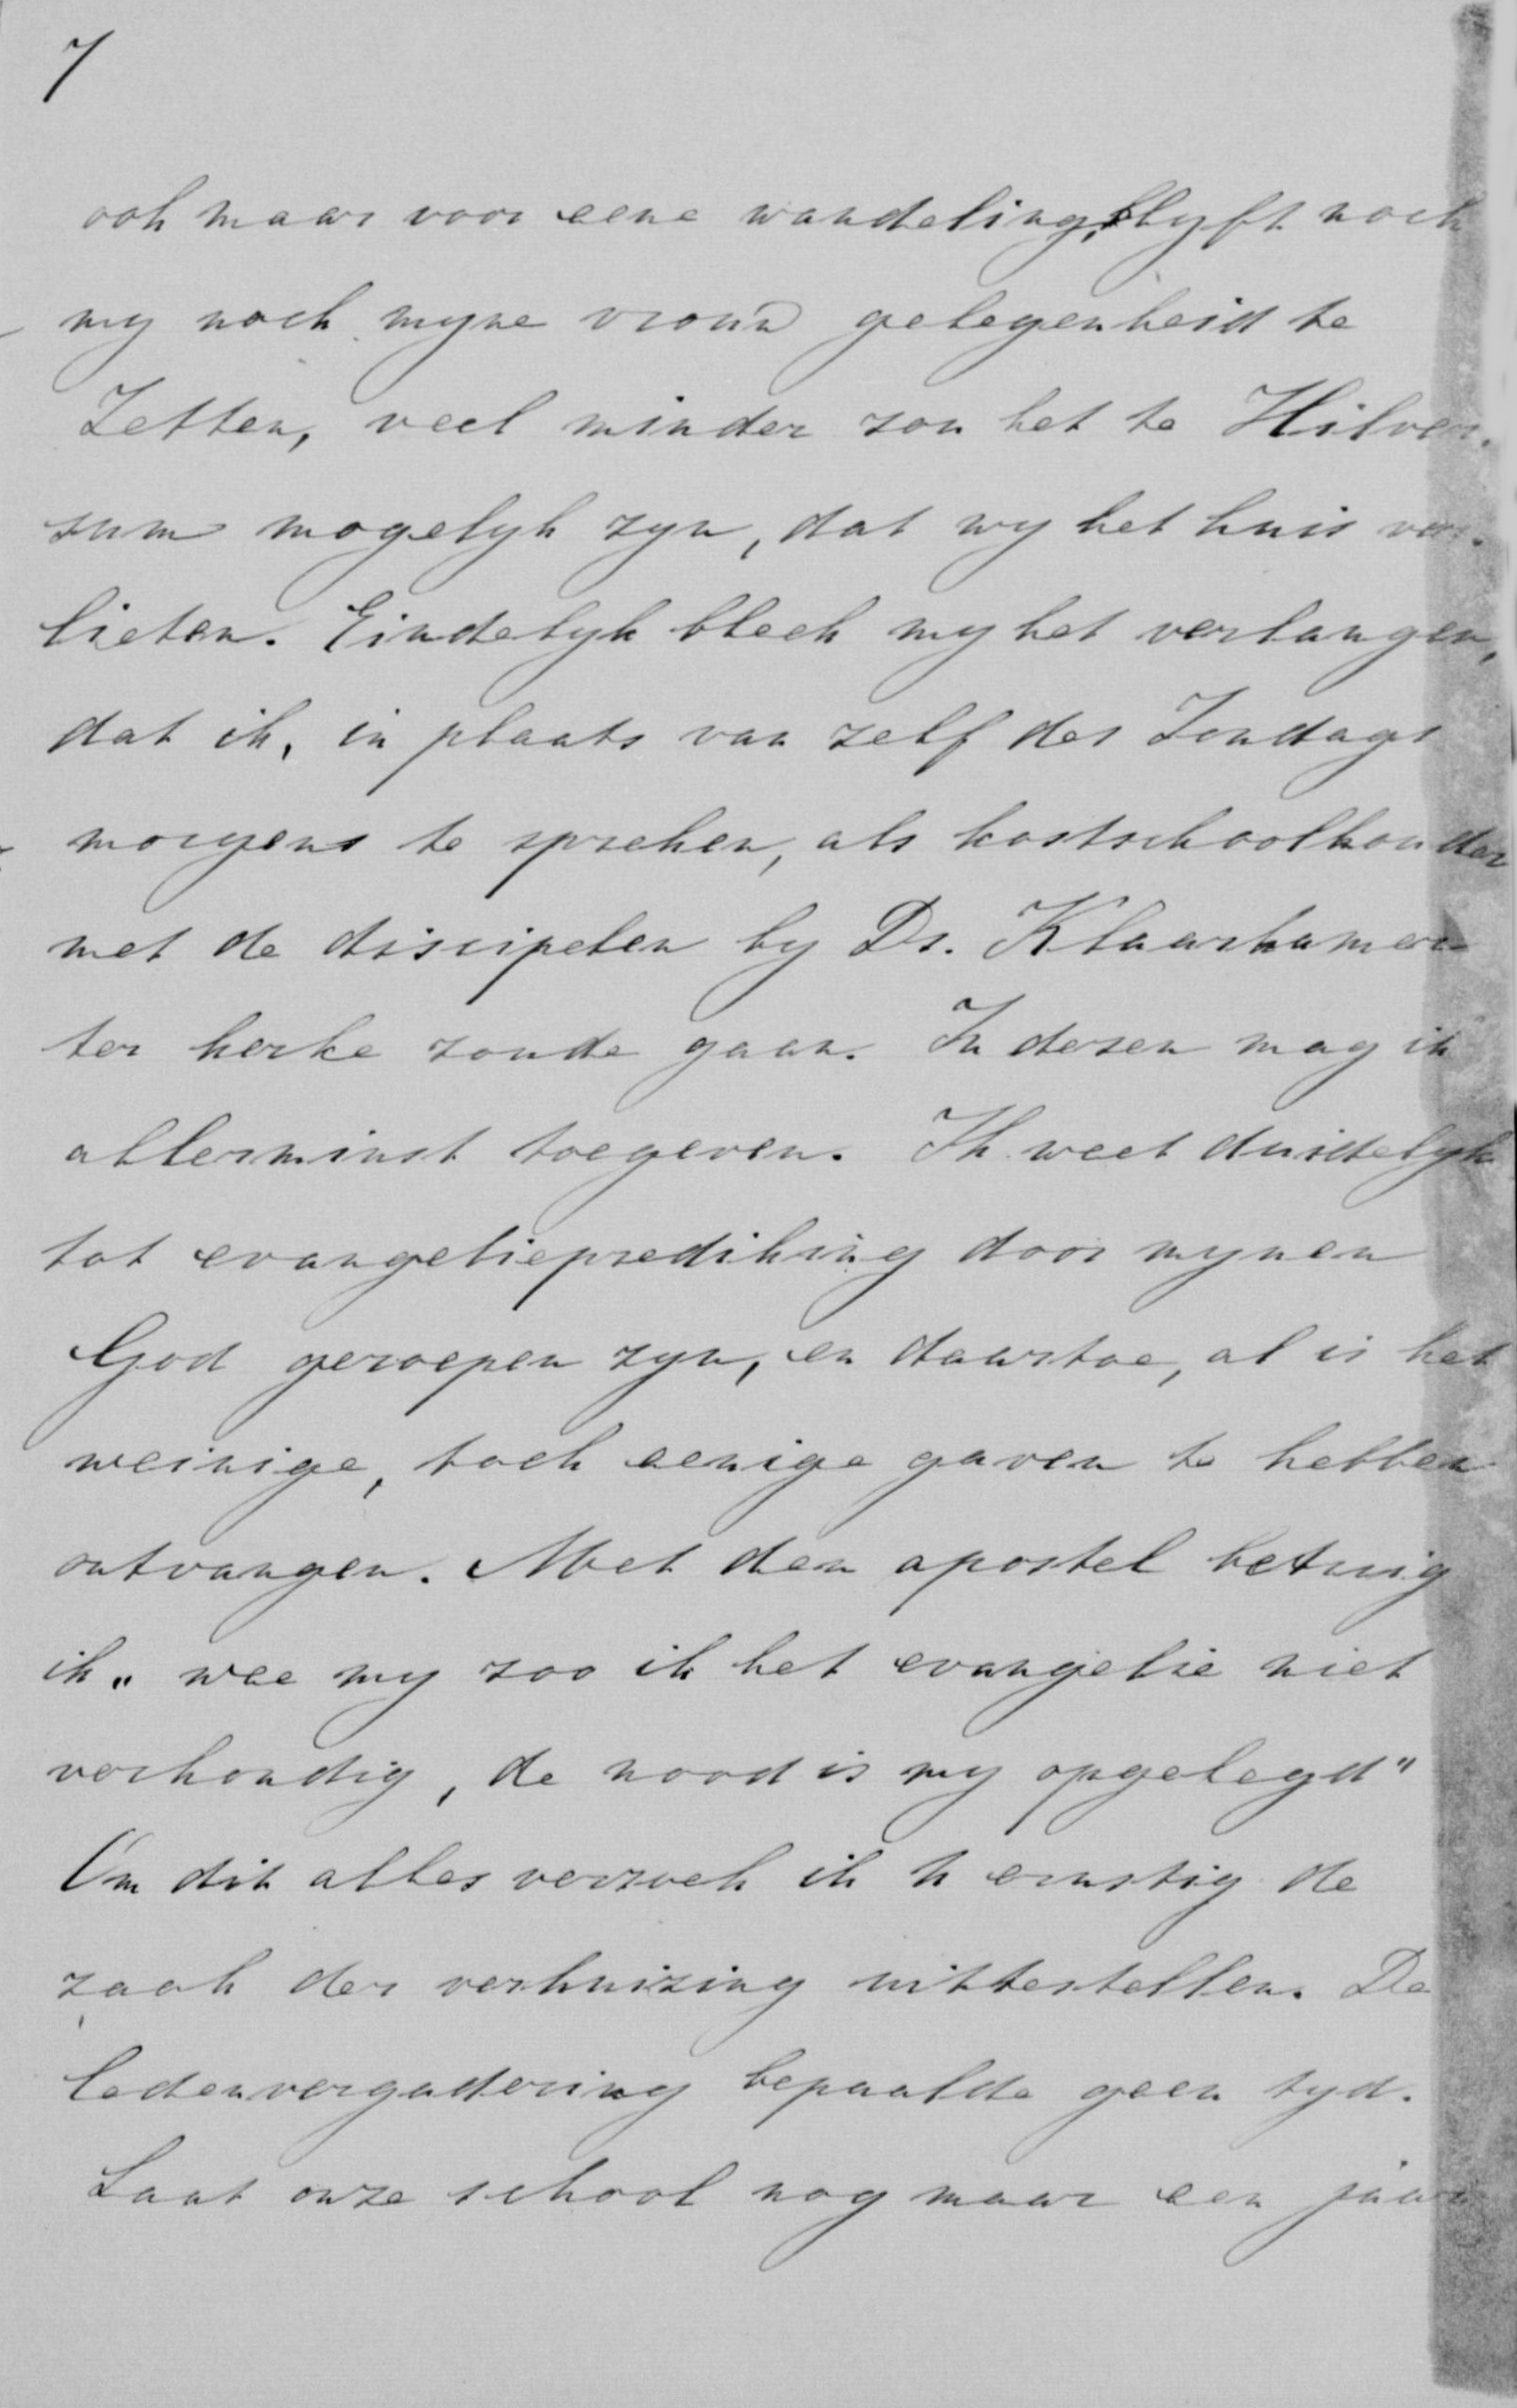 7
ook maar voor eene wandeling, blyft noch
my noch myne vrouw gelegenheid te
Zetten, veel minder zou het te Hilver-
sum mogelyk zyn, dat wy het huis ver-
lieten. Eindelyk bleek my het verlangen,
dat ik, in plaats van zelf des Zondags
morgens te spreken, als kostschoolhouder
met de discipelen by Ds. Klaarhamer
ter kerke zoude gaan. In dezen mag ik
allerminst toegeven. Ik weet duidelyk
tot evangelieprediking door mynen
God geroepen zyn, en daartoe, al is het
weinige, toch eenige gaven te hebben
ontvangen. Met den apostel betuig
ik „ wee my zoo ik het evangelie niet
verkondig, de nood is my opgelegd"
Om dit alles verzoek ik U ernstig de
zaak der verhuizing uittestellen. De
ledenvergadering bepaalde geen tyd.
Laat onze school nog maar een jaar